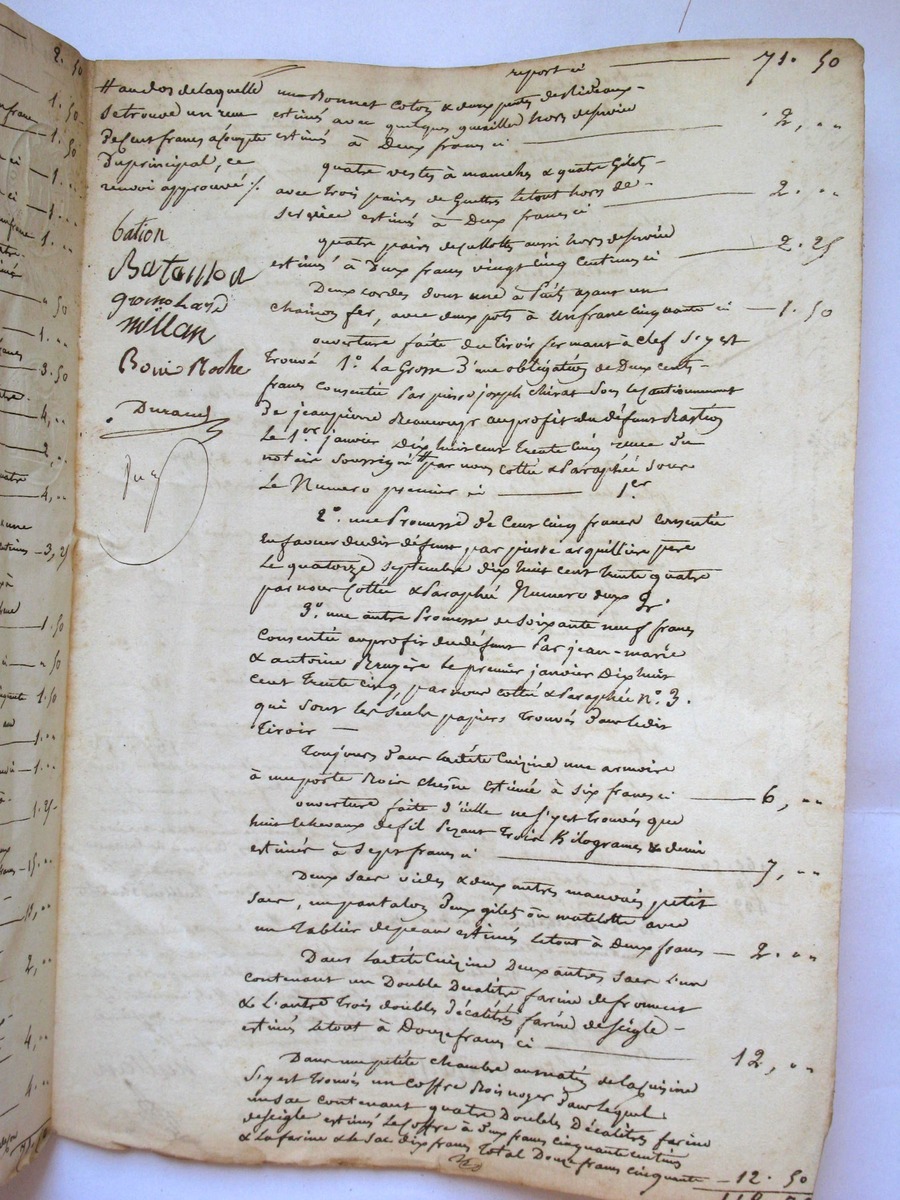 report ci 71. 50
un Bonnet coton & deux petits de Rideaux
estimés avec quelques guenilles hors de service
estimés à Deux francs ci 2, ..
quatre vestes à manches & quatre Gilets
avec Trois paires de Guettes Letout hors de
service estimés à Deux francs ci 2. ..
quatre pairs de culottes aussi hors de service
estimés à Deux francs vingt cinq centimes ci 2. 25
Deux cordes dont une à Puits ayant un
chainon fer, avec deux pots à Un franc cinquante ci 1. 50
ouverture faite du Tiroir fermant à clef S'y est
Trouvé 1° La Grosse D'une obligation de Deux cents
francs consentie Par pierre joseph chirat Sous le Cautionnement
De jean pierre au profit du défunt
Le 1er janvier Dix huit cent trente cinq reçue Du
notaire Soussigné # par nous Cottée & Paraphée Sous
Le Numero premier ci 1er
2°. une Promesse De Cent cinq francs consentie
En faveur dudit défunt par juste arquillière père
Le quatorze septembre dix huit cent trente quatre
par nous Cottée & Paraphée Numero deux
3° une autre Promesse de Soixante neuf francs
consentie au profit du défunt Par jean-marie
& antoine Bruyère Le premier janvier Dix huit
cent Trente cinq, par nous cottée & Paraphée N°. 3.
qui Sont Les Seuls papiers Trouvés Dans Ledit
Tiroir
Toujours Dans Ladite Cuizine une armoire
à une porte Bois chesne Estimée à Six francs ci 6, ..
ouverture faite d'icelle ne S'y est trouvés que
huit Echevaux de fil Pezant Trois Kilogrames & demi
estimés à Sept francs ci 7, ..
Deux Sacs vides & deux autres mauvais petits
Sacs, un pantalon Deux gilets ou matelotte avec
un Tablier de peau estimés Letout à Deux francs 2. ..
Dans Ladite Cuizine Deux autres Sacs L'un
contenant un Double Décalitre farine de froment
& L'autre Trois doubles Décalitres farine de seigle
estimés Letout à Douze francs ci 12, ..
Dans une petite chambre au matin de La cuisine
S'y est Trouvés un coffre Bois noyer Dans Lequel
un sac contenant quatre Doubles Décalitres farine
de seigle estimés Le coffre à Deux francs cinquante centimes
& La farine & le Sac dix francs Total Douze francs cinquante 12. 50
# au dos de laquelle
Se trouve un reçu
De Cent francs à compte
Du principal, ce
renvoi approuvé ∕.
Bataillon
millan
Durand
2. 50
1. 50
1. 50
1. ..
1. ..
1. ..
.. 50
1. ..
3. 50
4, ..
2, ..
4, ..
3, 25
1. 50
.. 50
1. 50
1. ..
1. ..
1. 25
15. ..
2, ..
4, ..
4, ..